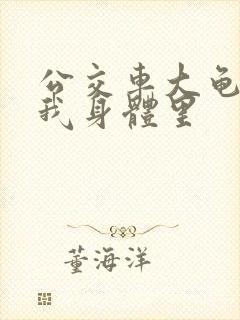 公交車大龟
我身體里
董海洋